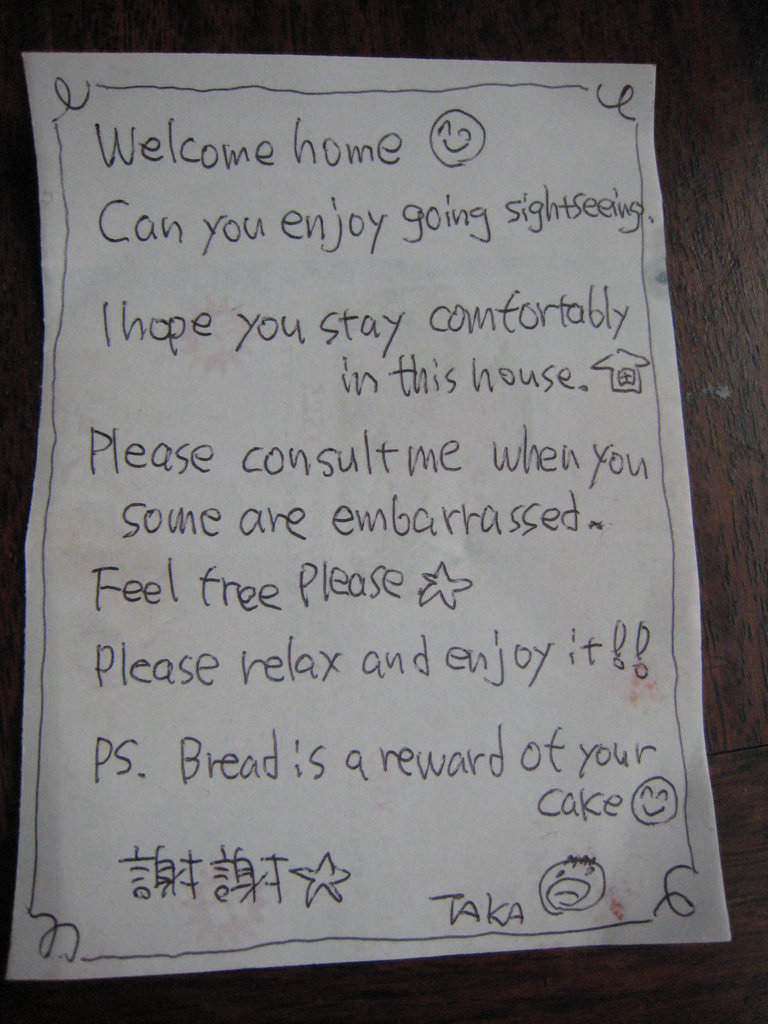 Welcome home
Can you enjoy going sightseeing.
I hope you stay comfortably
in this house.
Please consult me when you
some are embarrassed.
Feel free Please
Please relax and enjoy it!!
PS. Bread is a reward of your
cake
謝謝
TAKA